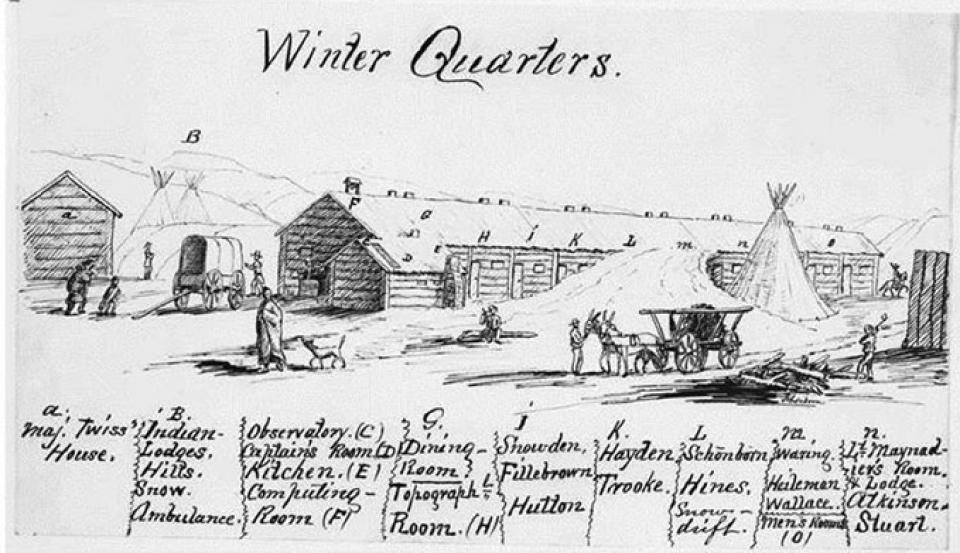 Winter Quarters.
B
F
G
a
D
E
H
i
K
L
m
n
o
a.
Maj. Twiss'
House.
B.
Indian-
Lodges.
Hills.
Snow.
Ambulance.
Observatory. (C)
Captains Room (D)
Kitchen. (E)
Computing-
Room (F)
G.
Dining-
Room
Topograph
Room. (H)
i
Snowden.
Fillebrown
Hutton
K.
Hayden
Trooke.
L
Schönborn
Hines.
Snow-
drift.
m.
Waring.
Heileman
Wallace.
Men's Rooms
(O)
n.
Lt. Maynad-
iers Room.
& Lodge.
Atkinson-
Stuart.